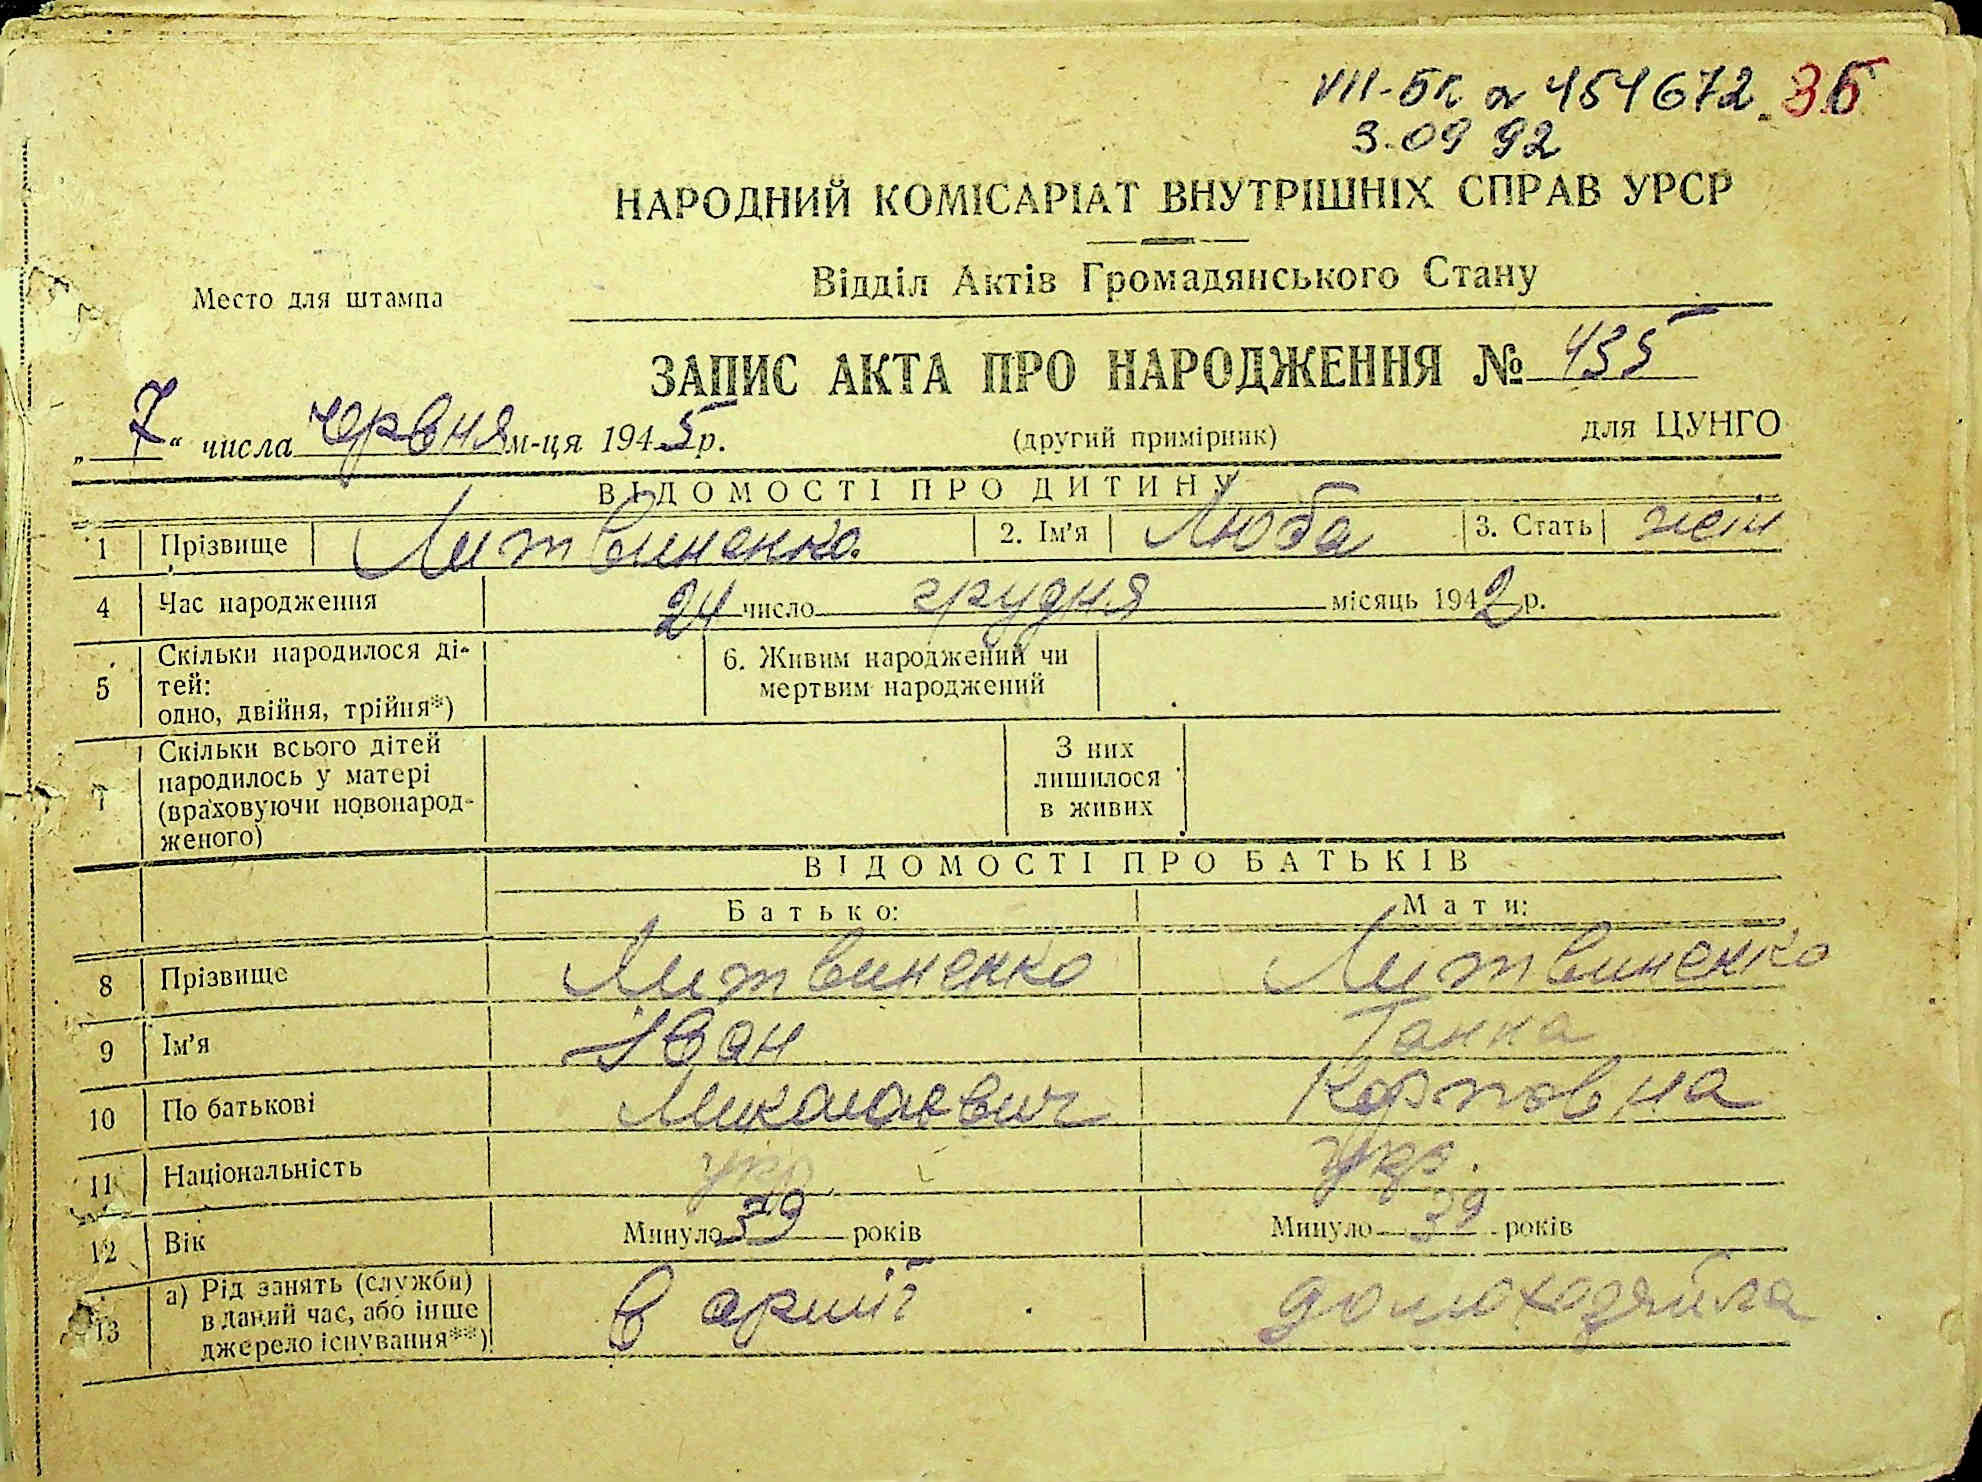 VII-БК № 454672 35
3.09 92
НАРОДНИЙ КОМІСАРІАТ ВНУТРІШНІХ СПРАВ УРСР
Відділ Актів Громадянського Стану
Место для штампа
ЗАПИС АКТА ПРО НАРОДЖЕННЯ № 435
„7“ числа червня м-ця 1945 р. (другий примірник) для ЦУНГО
ВІДОМОСТІ ПРО ДИТИНУ
1 Прізвище Литвиненко 2. Ім'я Люба 3. Стать жін
4 Час народження 24 число грудня місяць 1942 р.
5 Скільки народилося ді-
тей:
одно, двійня, трійня*)
6. Живим народжений чи
мертвим народжений
7 Скільки всього дітей
народилось у матері
(враховуючи новонарод-
женого)
З них
лишилося
в живих
ВІДОМОСТІ ПРО БАТЬКІВ
Батько: Мати:
8 Прізвище Литвиненко Литвиненко
9 Ім'я Іван Ганна
10 По батькові Миколаєвич Карповна
11 Національність укр. укр.
12 Вік Минуло 39 років Минуло 39 років
13 а) Рід занять (служби)
в даний час, або інше
джерело існування**)
в армії домохозяйка